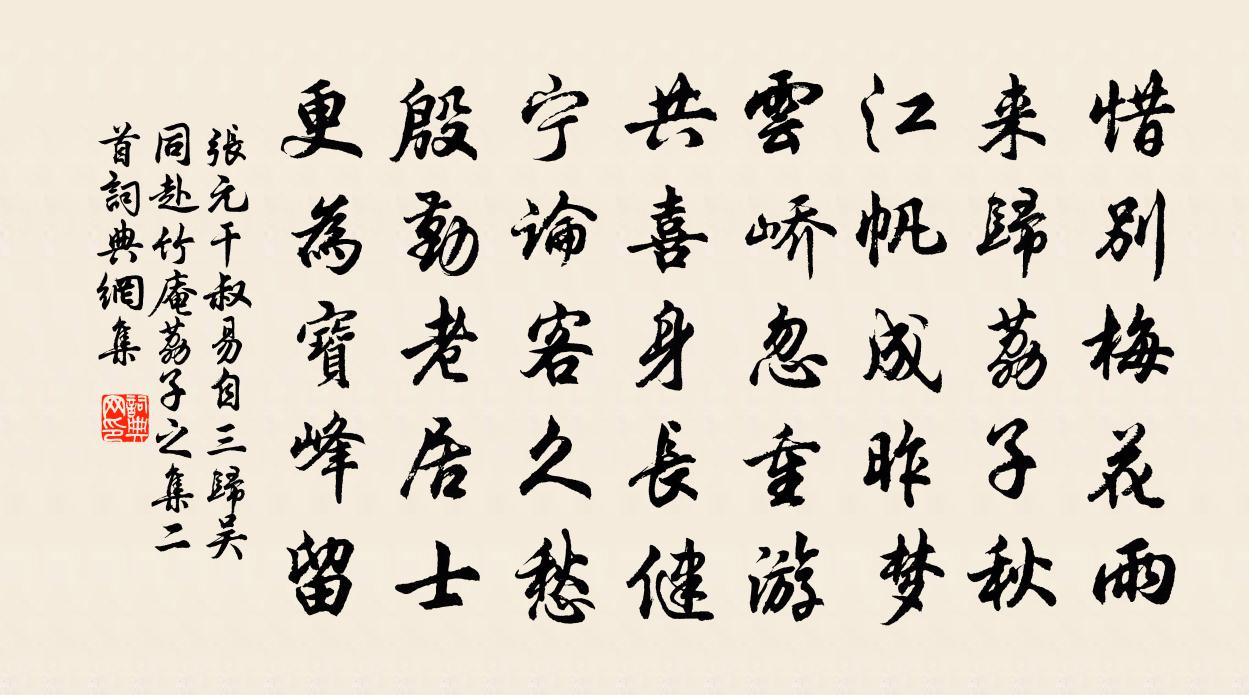 惜别梅花雨
来歸荔子秋
江帆成昨梦
雲峤忽重游
共喜身長健
宁論客久愁
殷勤老居士
更為寶峰留
張元干叔易自三歸吴
同赴竹庵荔子之集二
首詞典網集
詞典网印